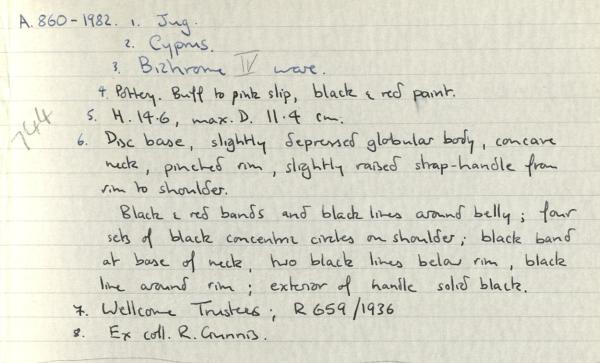 A. 860-1982. 1. Jug.
2. Cyprus.
3. Bichrome IV ware.
4. Pottery. Buff to pink slip, black & red paint.
744
5. H. 14.6, max. D. 11.4 cm.
6. Disc base, slightly depressed globular body, concave
neck, pinched rim, slightly raised strap-handle from
rim to shoulder.
Black & red bands and black lines around belly; four
sets of black concentric circles on shoulder; black band
at base of neck, two black lines below rim, black
line around rim; exterior of handle solid black.
7. Wellcome Trustees; R 659/1936
8. Ex coll. R. Gunnis.